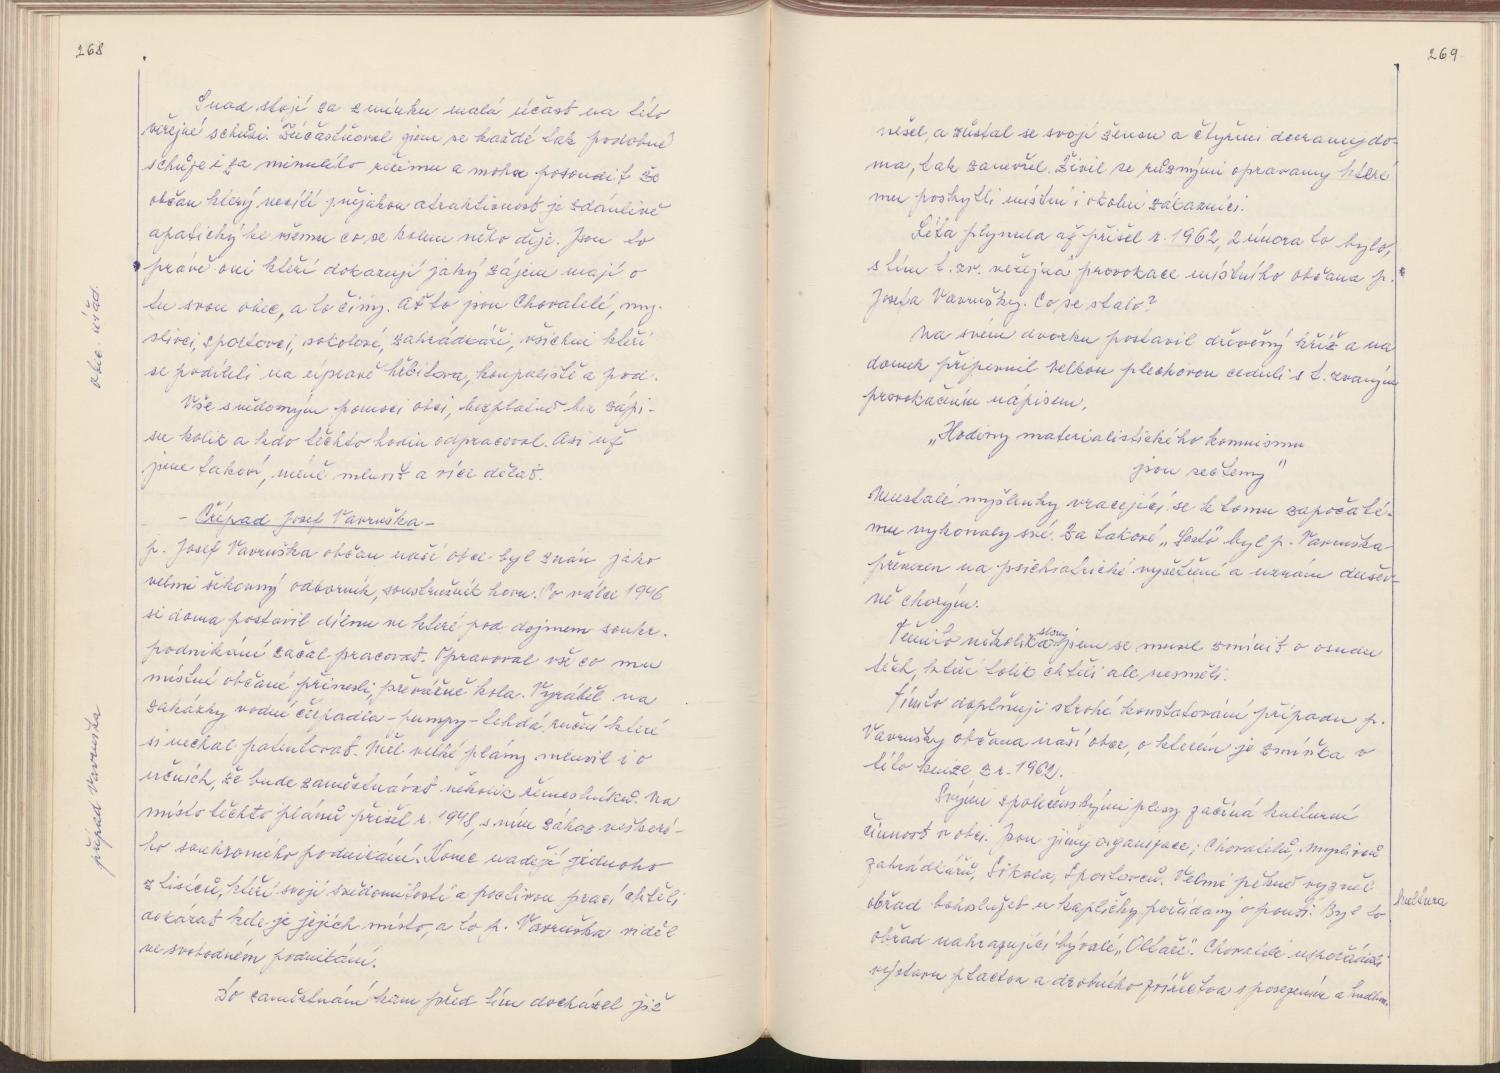 268
Snad stojí za zmínku malá účast na této
veřejné schůzi. Zúčastňoval jsem se každé tak podobné
schůze i za minulého režimu a mohu posoudit že
občan který necítí nějakou atraktivnost je zdánlivě
apatický ke všemu co se kolem něho děje. Jsou to
právě oni kteří dokazují jaký zájem mají o
tu svou obec, a to činy. Ať to jsou Chovatelé, my-
slivci, sportovci, sokolové, zahrádkáři, všichni kteří
se podíleli na úpravě hřbitova, koupaliště a pod.
Vše s vědomým pomoci obci, bezplatně bez zápi-
su kolik a kdo těchto hodin odpracoval. Asi už
jsme takoví, méně mluvit a více dělat.
obec. úřad.
- Případ Josef Vavruška -
p. Josef Vavruška občan naší obce byl znám jako
velmi šikovný odborník, soustružník kovu. Po válce 1946
si doma postavil dílnu ve které pod dojmem soukr.
podnikání začal pracovat. Opravoval vše co mu
místní občané přinesli, převážně kola. Vyráběl na
zakázky vodní čerpadla - pumpy - tehdá ruční které
si nechal patentovat. Měl velké plány mluvil i o
učních, že bude zaměstnávat několik řemeslníků. Na
místo těchto plánů přišel r. 1948, s ním zákaz veškeré-
ho soukromého podnikání. Konec nadějí jednoho
z tisíců, kteří svojí svědomitostí a poctivou prací chtěli
dokázat kde je jejich místo, a to p. Vavruška viděl
ve svobodném podnikání.
Do zaměstnání kam před tím docházel již
případ Vavruška
269
nešel, a zůstal se svojí ženou a čtyřmi dcerami do-
ma, tak zanevřel. Živil se různými opravami které
mu poskytli místní i okolní zákazníci.
Léta plynula až přišel r. 1962, 2 února to bylo,
s tím t. zv. veřejná provokace místního občana p.
Josefa Vavrušky. Co se stalo?
Na svém dvorku postavil dřevěný kříž a na
domek připevnil velkou plechovou ceduli s t. zvaným
provokačním nápisem,
„Hodiny materialistického komnismu
jsou sečteny"
Neustálé myšlenky vracející se k tomu započaté-
mu vykonaly své. Za takové „Gesto" byl p. Vavruška
převezen na psichiatrické vyšetření a uznán dušev-
ně chorým.
Těmito několika slovy jsem se musel zmínit o osudu
těch, kteří tolik chtěli ale nesměli.
Tímto doplňuji strohé konstatování případu p.
Vavrušky občana naší obce, o kterém je zmínka v
této knize z r. 1962.
Svými společenskými plesy začíná kulturní
činnost v obci. Jsou jimy organizace; Chovatelů, Myslivců
zahrádkářů, Sokola, Sportovců. Velmi pěkně vyzněl
obřad bohoslužeb u kapličky pořádaný o pouti. Byl to
obřad nahrazující bývalé „Oltáře". Chovatelé uspořádali
výstavu ptactva a drobného zvířectva s posezením a hudbou.
kultura